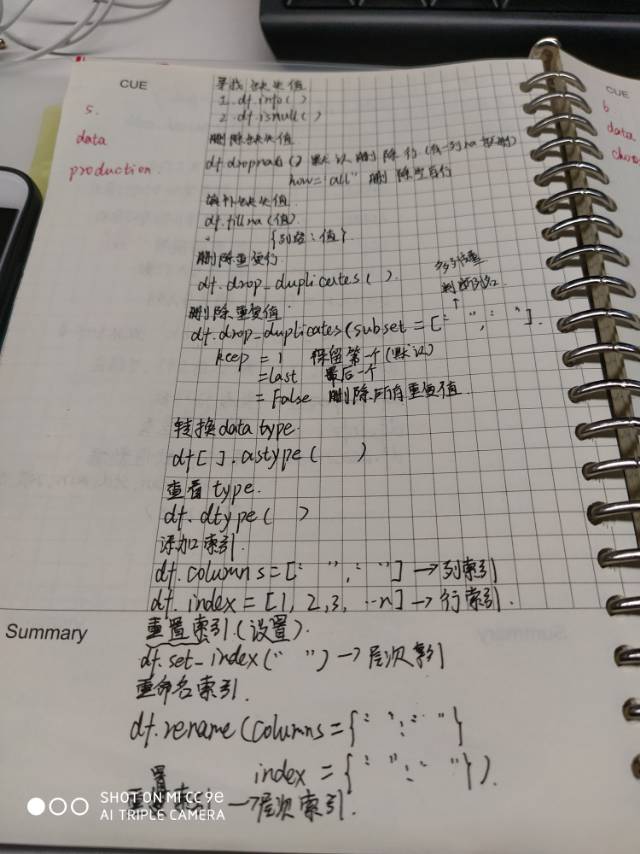 CUE
5.
data
production
寻找缺失值
1. df.info()
2. df.isnull()
删除缺失值
df.dropna() 默认删除行
how="all" 删除空白行
填补缺失值
df.fillna(值)
{列名:值}
删除重复行
df.drop_duplicates().
删除重复值
判断列名
df.drop_duplicates(subset=[" "," "].
keep = 1 保留第一个(默认)
=last 最后一个
= False 删除所有重复值
转换data type.
df[ ].astype( )
查看type.
df.dtype( )
添加索引.
df.columns=[" "," "] →列索引
df.index=[1, 2, 3, …n] →行索引.
Summary
重置索引(设置).
df.set_index(" ") →层次索引
重命名索引.
df.rename(columns={" ":" "}
index={" ":" "}).
置
索引 →层次索引.
CUE
6
data
Summary
SHOT ON MI CC9e
AI TRIPLE CAMERA